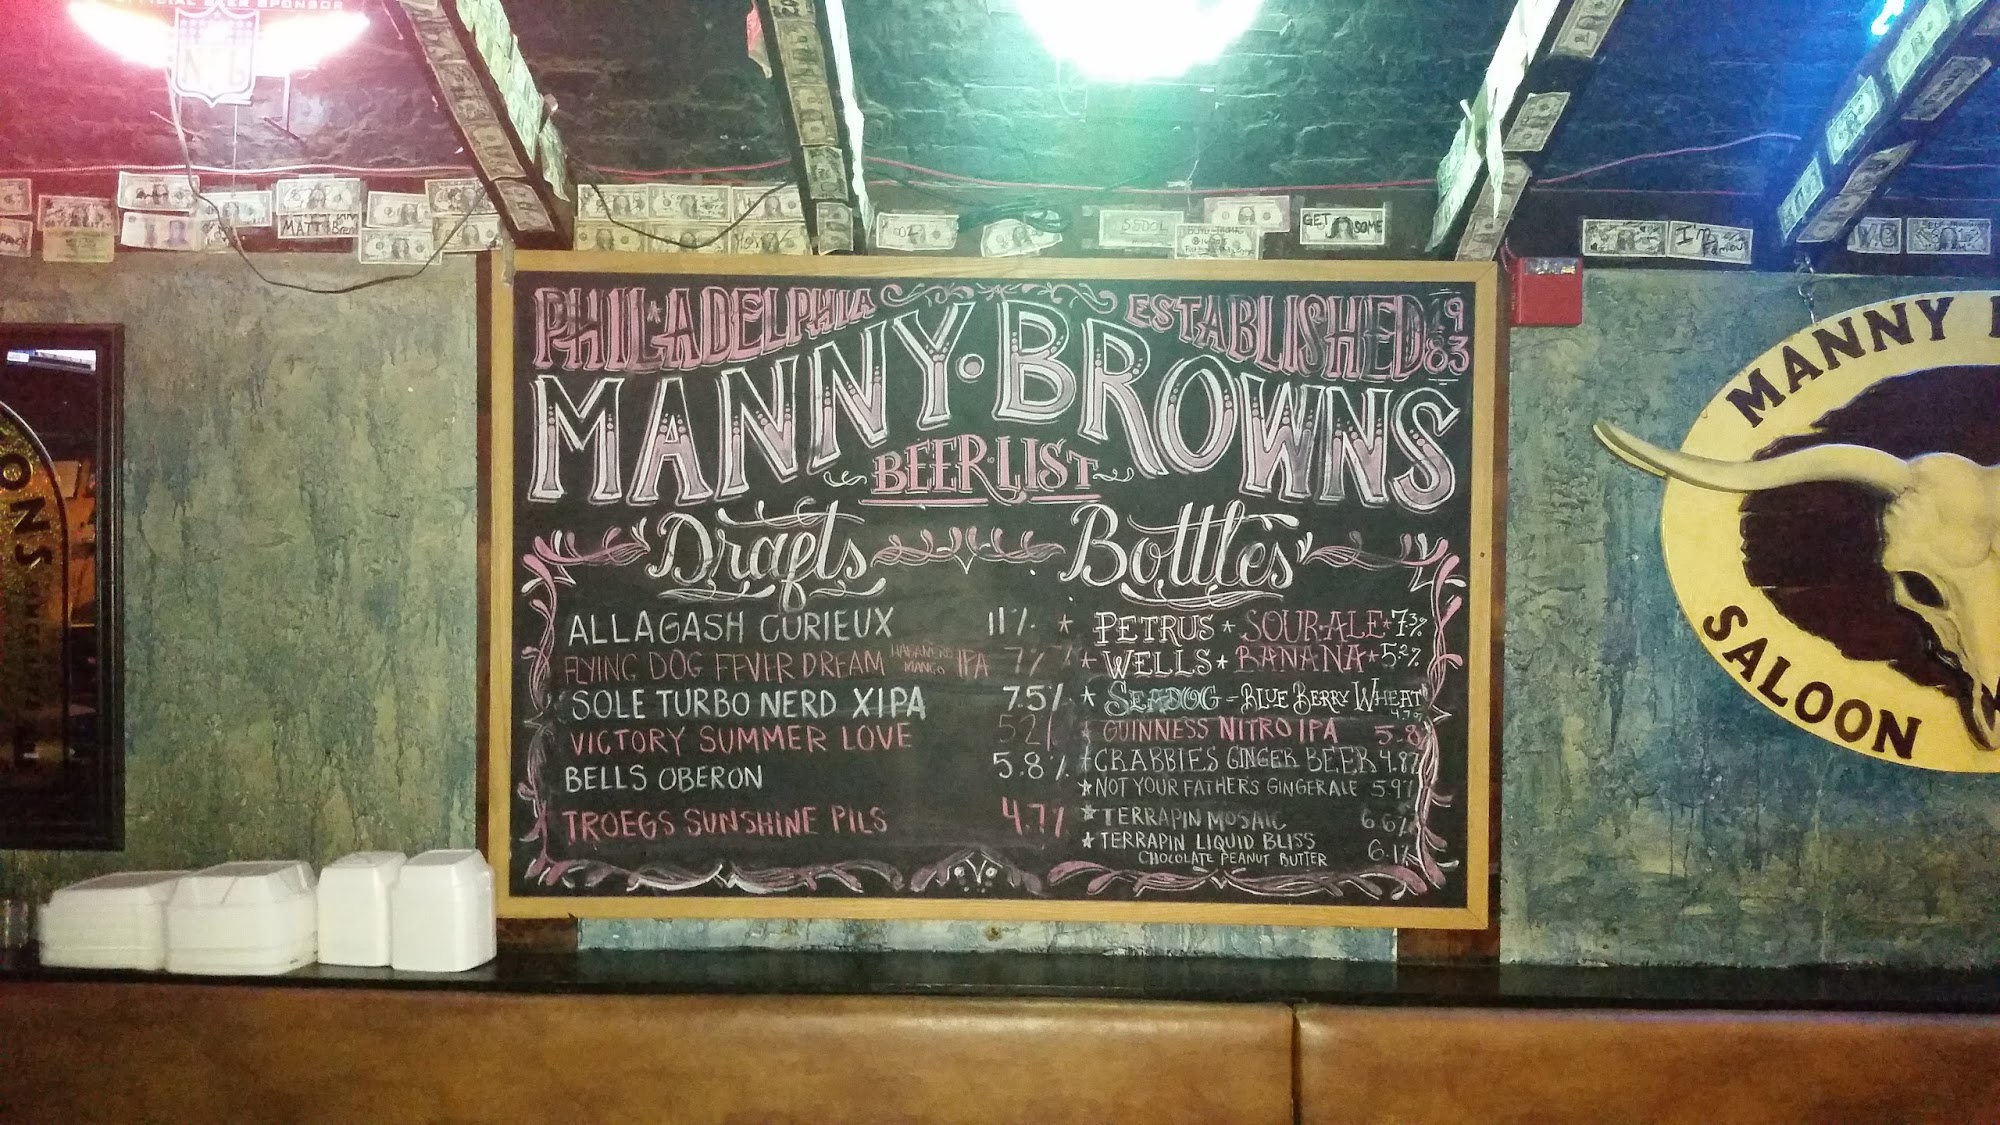 OFFICIAL BEER SPONSOR
NFL
MATT
GET SOME
I'm Famous
W.B
PHILADELPHIA
ESTABLISHED 1983
MANNY · BROWNS
BEER · LIST
Drafts
Bottles
ALLAGASH CURIEUX 11%
FLYING DOG FEVER DREAM HABANERO MANGO IPA 7%
SOLE TURBO NERD XIPA 7.5%
VICTORY SUMMER LOVE 5.2%
BELLS OBERON 5.8%
TROEGS SUNSHINE PILS 4.7%
* PETRUS * SOUR ALE * 7.3%
* WELLS * BANANA * 5.2%
* SEADOG - BLUE BERRY WHEAT
4.7%
* GUINNESS NITRO IPA 5.8
* CRABBIES GINGER BEER 4.8%
* NOT YOUR FATHERS GINGERALE 5.9%
* TERRAPIN MOSAIC 6.6%
* TERRAPIN LIQUID BLISS
CHOCOLATE PEANUT BUTTER 6.1%
MANNY
SALOON
ONS
SINCE